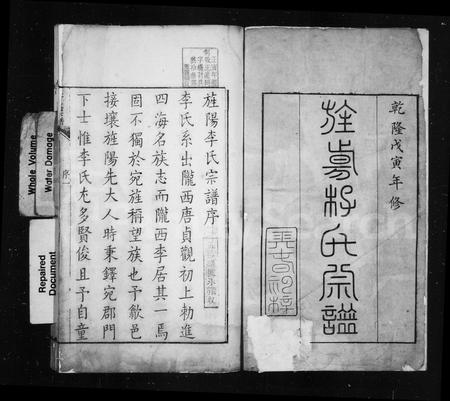 乾隆戊寅年修
旌陽李氏宗譜
旌陽李氏宗譜序
李氏系出隴西唐貞觀初上勅進
四海名族志而隴西李居其一焉
固不獨於宛旌稱望族也予歙邑
接壤旌陽先大人時秉鐸宛郡門
下士惟李氏尤多賢俊且予自童
序
一
Whole Volume
Water Damage
Repaired
Document